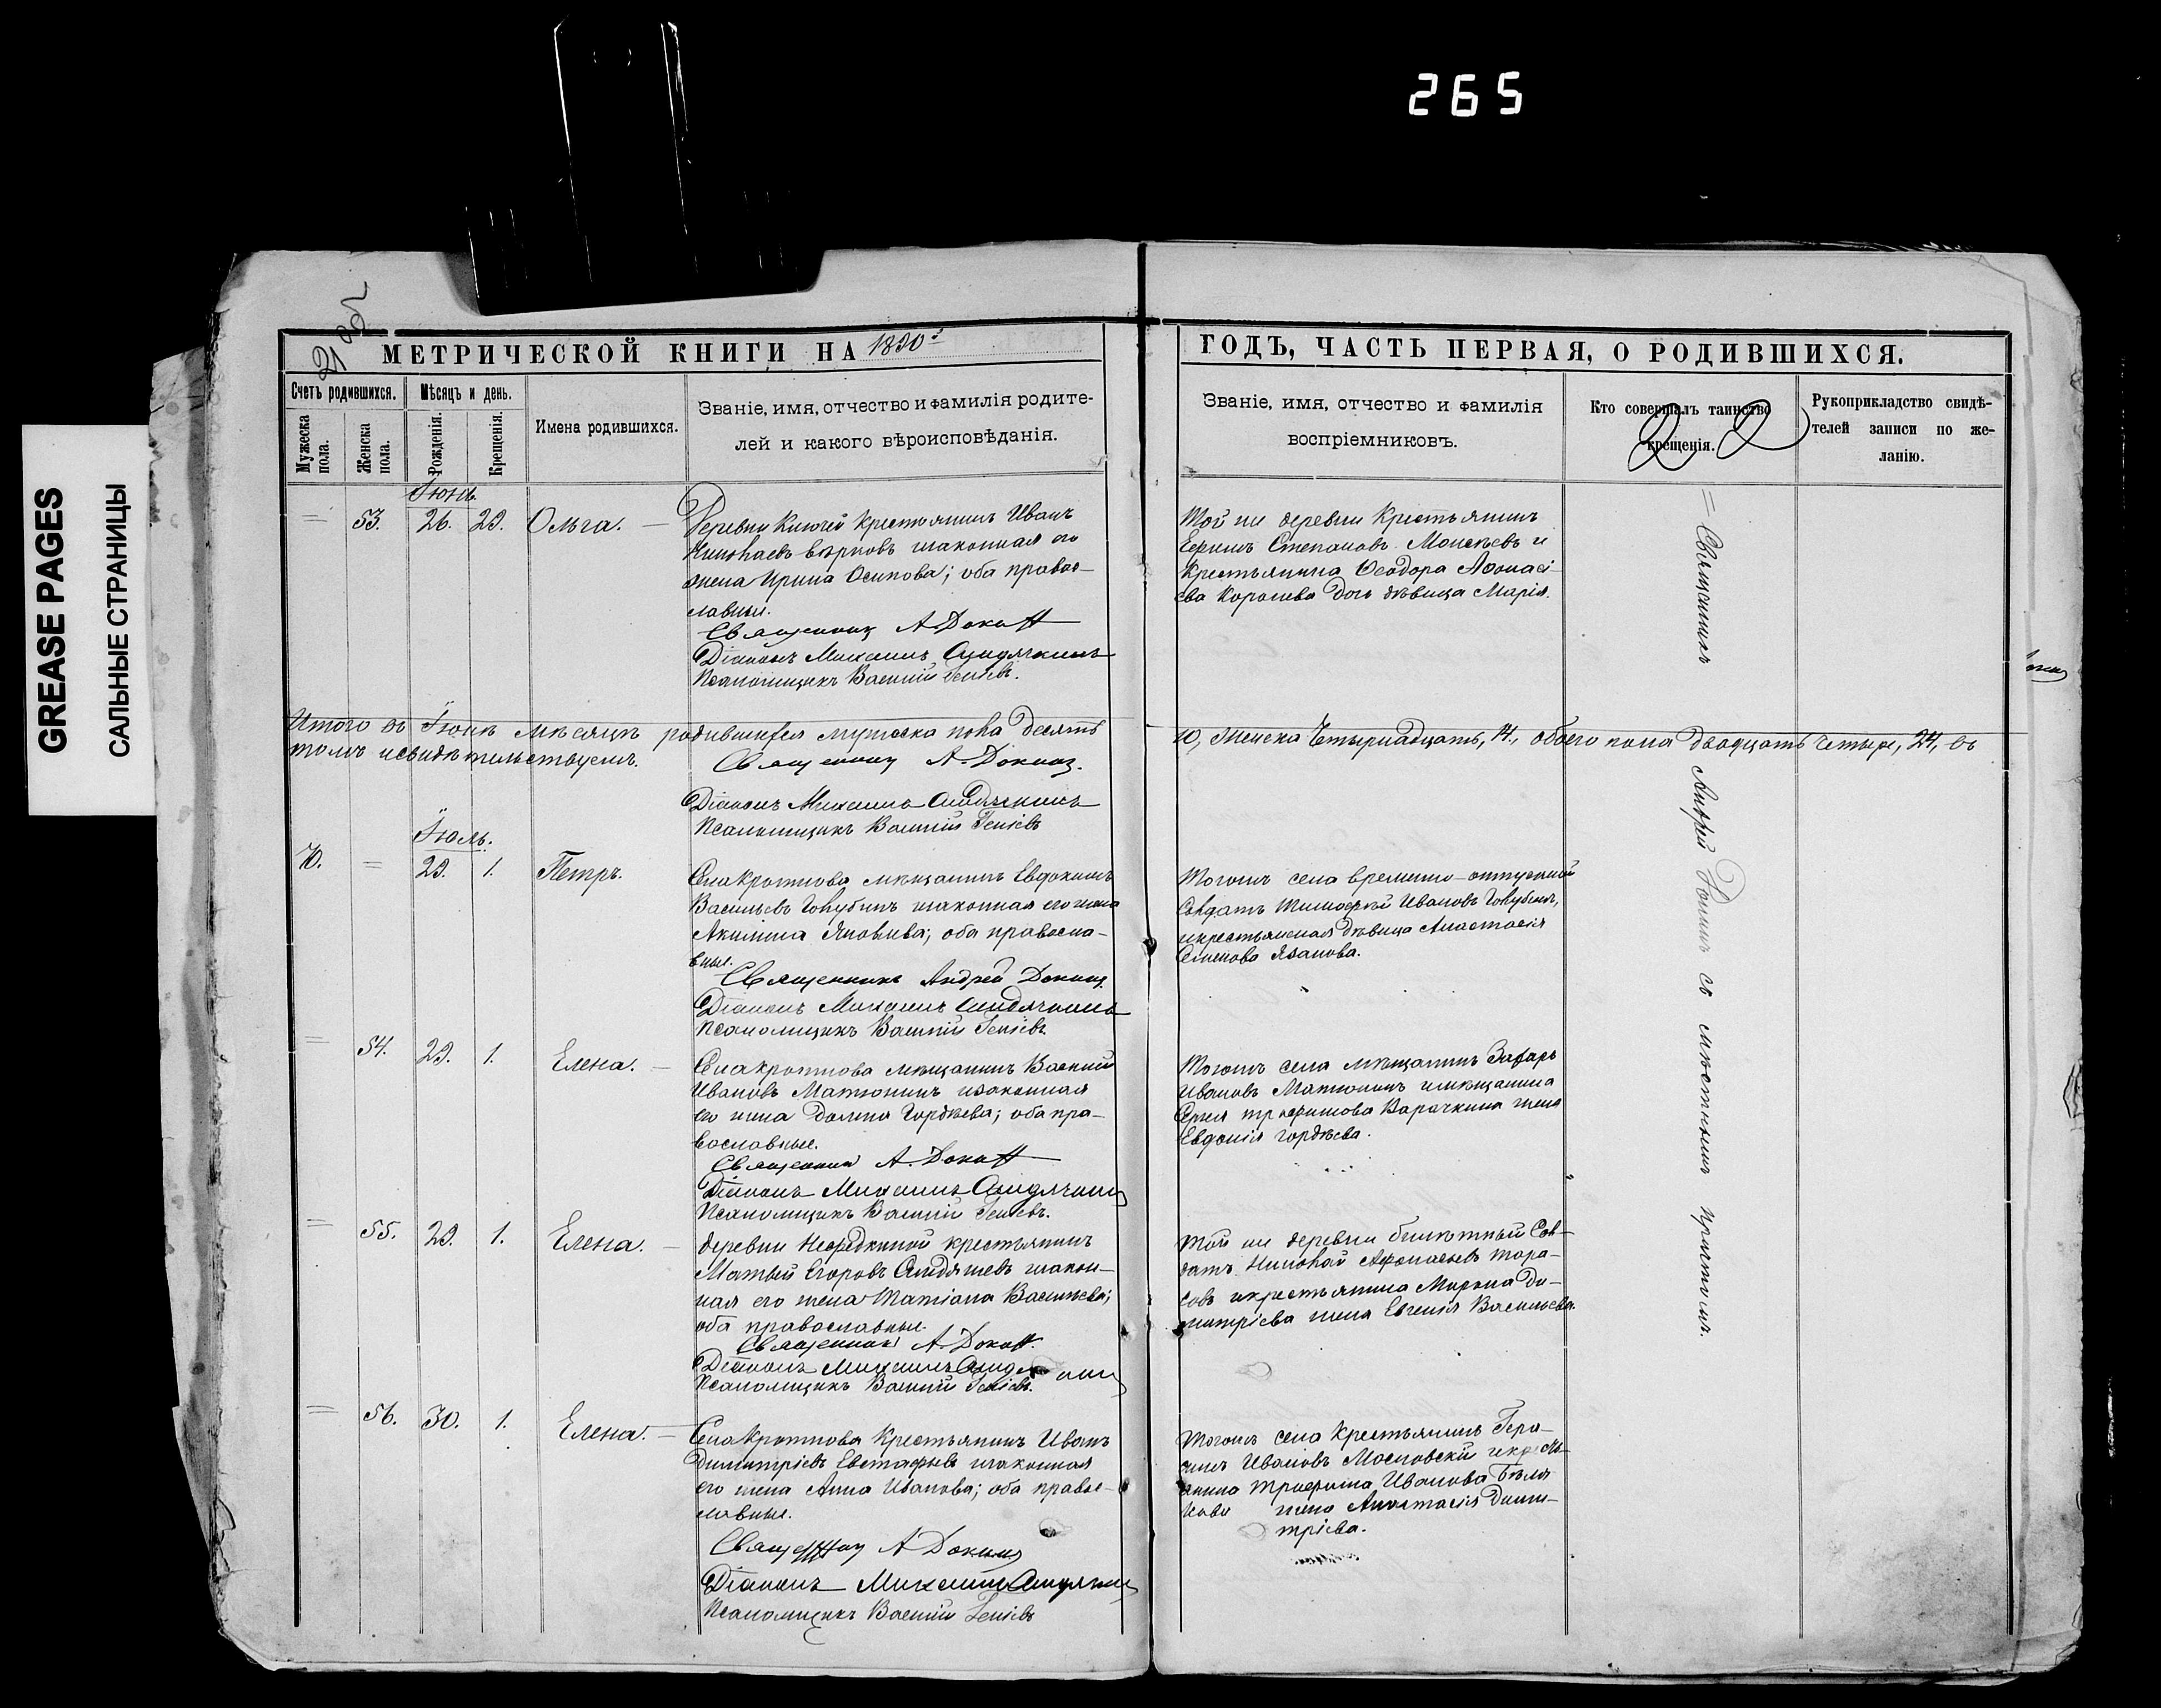 265
GREASE PAGES
САЛЬНЫЕ СТРАНИЦЫ
21 об
МЕТРИЧЕСКОЙ КНИГИ НА 1890 ГОДЪ, ЧАСТЬ ПЕРВАЯ, О РОДИВШИХСЯ.
Счетъ родившихся.
Мужеска пола.
Женска пола.
Мѣсяцъ и день.
Рожденія.
Крещенія.
Имена родившихся.
Званіе, имя, отчество и фамилія родите-
лей и какого вѣроисповѣданія.
Званіе, имя, отчество и фамилія
воспріемниковъ.
Кто совершалъ таинство
крещенія.
Рукоприкладство свидѣ-
телей записи по же-
ланію.
Іюнь.
53. 26. 29. Ольга.
Деревни Ключей крестьянинъ Иванъ
законная его
жена Ирина Осипова; оба право-
славные.
Священник А. Докт
Діаконъ Михаилъ
Псаломщикъ Василій Геніевъ.
Той же деревни крестьянинъ
Ефимъ Степановъ Моисѣевъ и
крестьянина Ѳеодора Аѳонасі-
ева дочь дѣвица Марія.
Итого въ Іюнѣ мѣсяцѣ родившихся мужеска пола десять
10, женска четырнадцать, 14., обоего пола двадцать четыре, 24, въ
томъ и свидѣтельствуемъ.
Священник А. Докт
Діаконъ Михаилъ
Псаломщикъ Василій Геніевъ
Іюль.
70. 29. 1. Петръ.
Села Кроткова мѣщанинъ Евдокимъ
Васильевъ Голубинъ и законная его жена
Акилина Яковлева; оба правосла-
вные.
Священникъ Андрей
Діаконъ Михаилъ
Псаломщикъ Василій Геніевъ.
Тогоже села временно-отпускной
Солдатъ Тимоѳей Ивановъ Голубинъ,
и крестьянская дѣвица Анастасія
Семенова
54. 29. 1. Елена.
Села Кроткова мѣщанинъ Василій
Ивановъ Матюнинъ и законная
его жена Домна Гордѣева; оба пра-
вославные.
Священник А. Докт
Діаконъ Михаилъ
Псаломщикъ Василій Геніевъ.
Тогоже села мѣщанинъ Захаръ
Ивановъ Матюнинъ и мѣщанина
жена
Евдокія Гордѣева.
55. 29. 1. Елена.
деревни крестьянинъ
Матвѣй Егоровъ закон-
ная его жена Татіана Васильева;
оба православные.
Священник А. Докт.
Діаконъ Михаилъ
Псаломщикъ Василій Геніевъ.
Той же деревни билетный Сол-
датъ Николай Афонасьевъ Тара-
совъ и крестьянина Ди-
митріева жена Евгенія Васильева.
56. 30. 1. Елена.
Села Кроткова Крестьянинъ Иванъ
Димитріевъ Евстафьевъ и законная
его жена Анна Иванова; оба право-
славные.
Священник А
Діаконъ Михаилъ
Псаломщикъ Василій Геніевъ
Тогоже села Крестьянинъ Гера-
симъ Ивановъ и кресть-
янина Трифона Иванова
жена Анастасія Дими-
тріева.
Священникъ Андрей съ мѣстнымъ причтомъ.